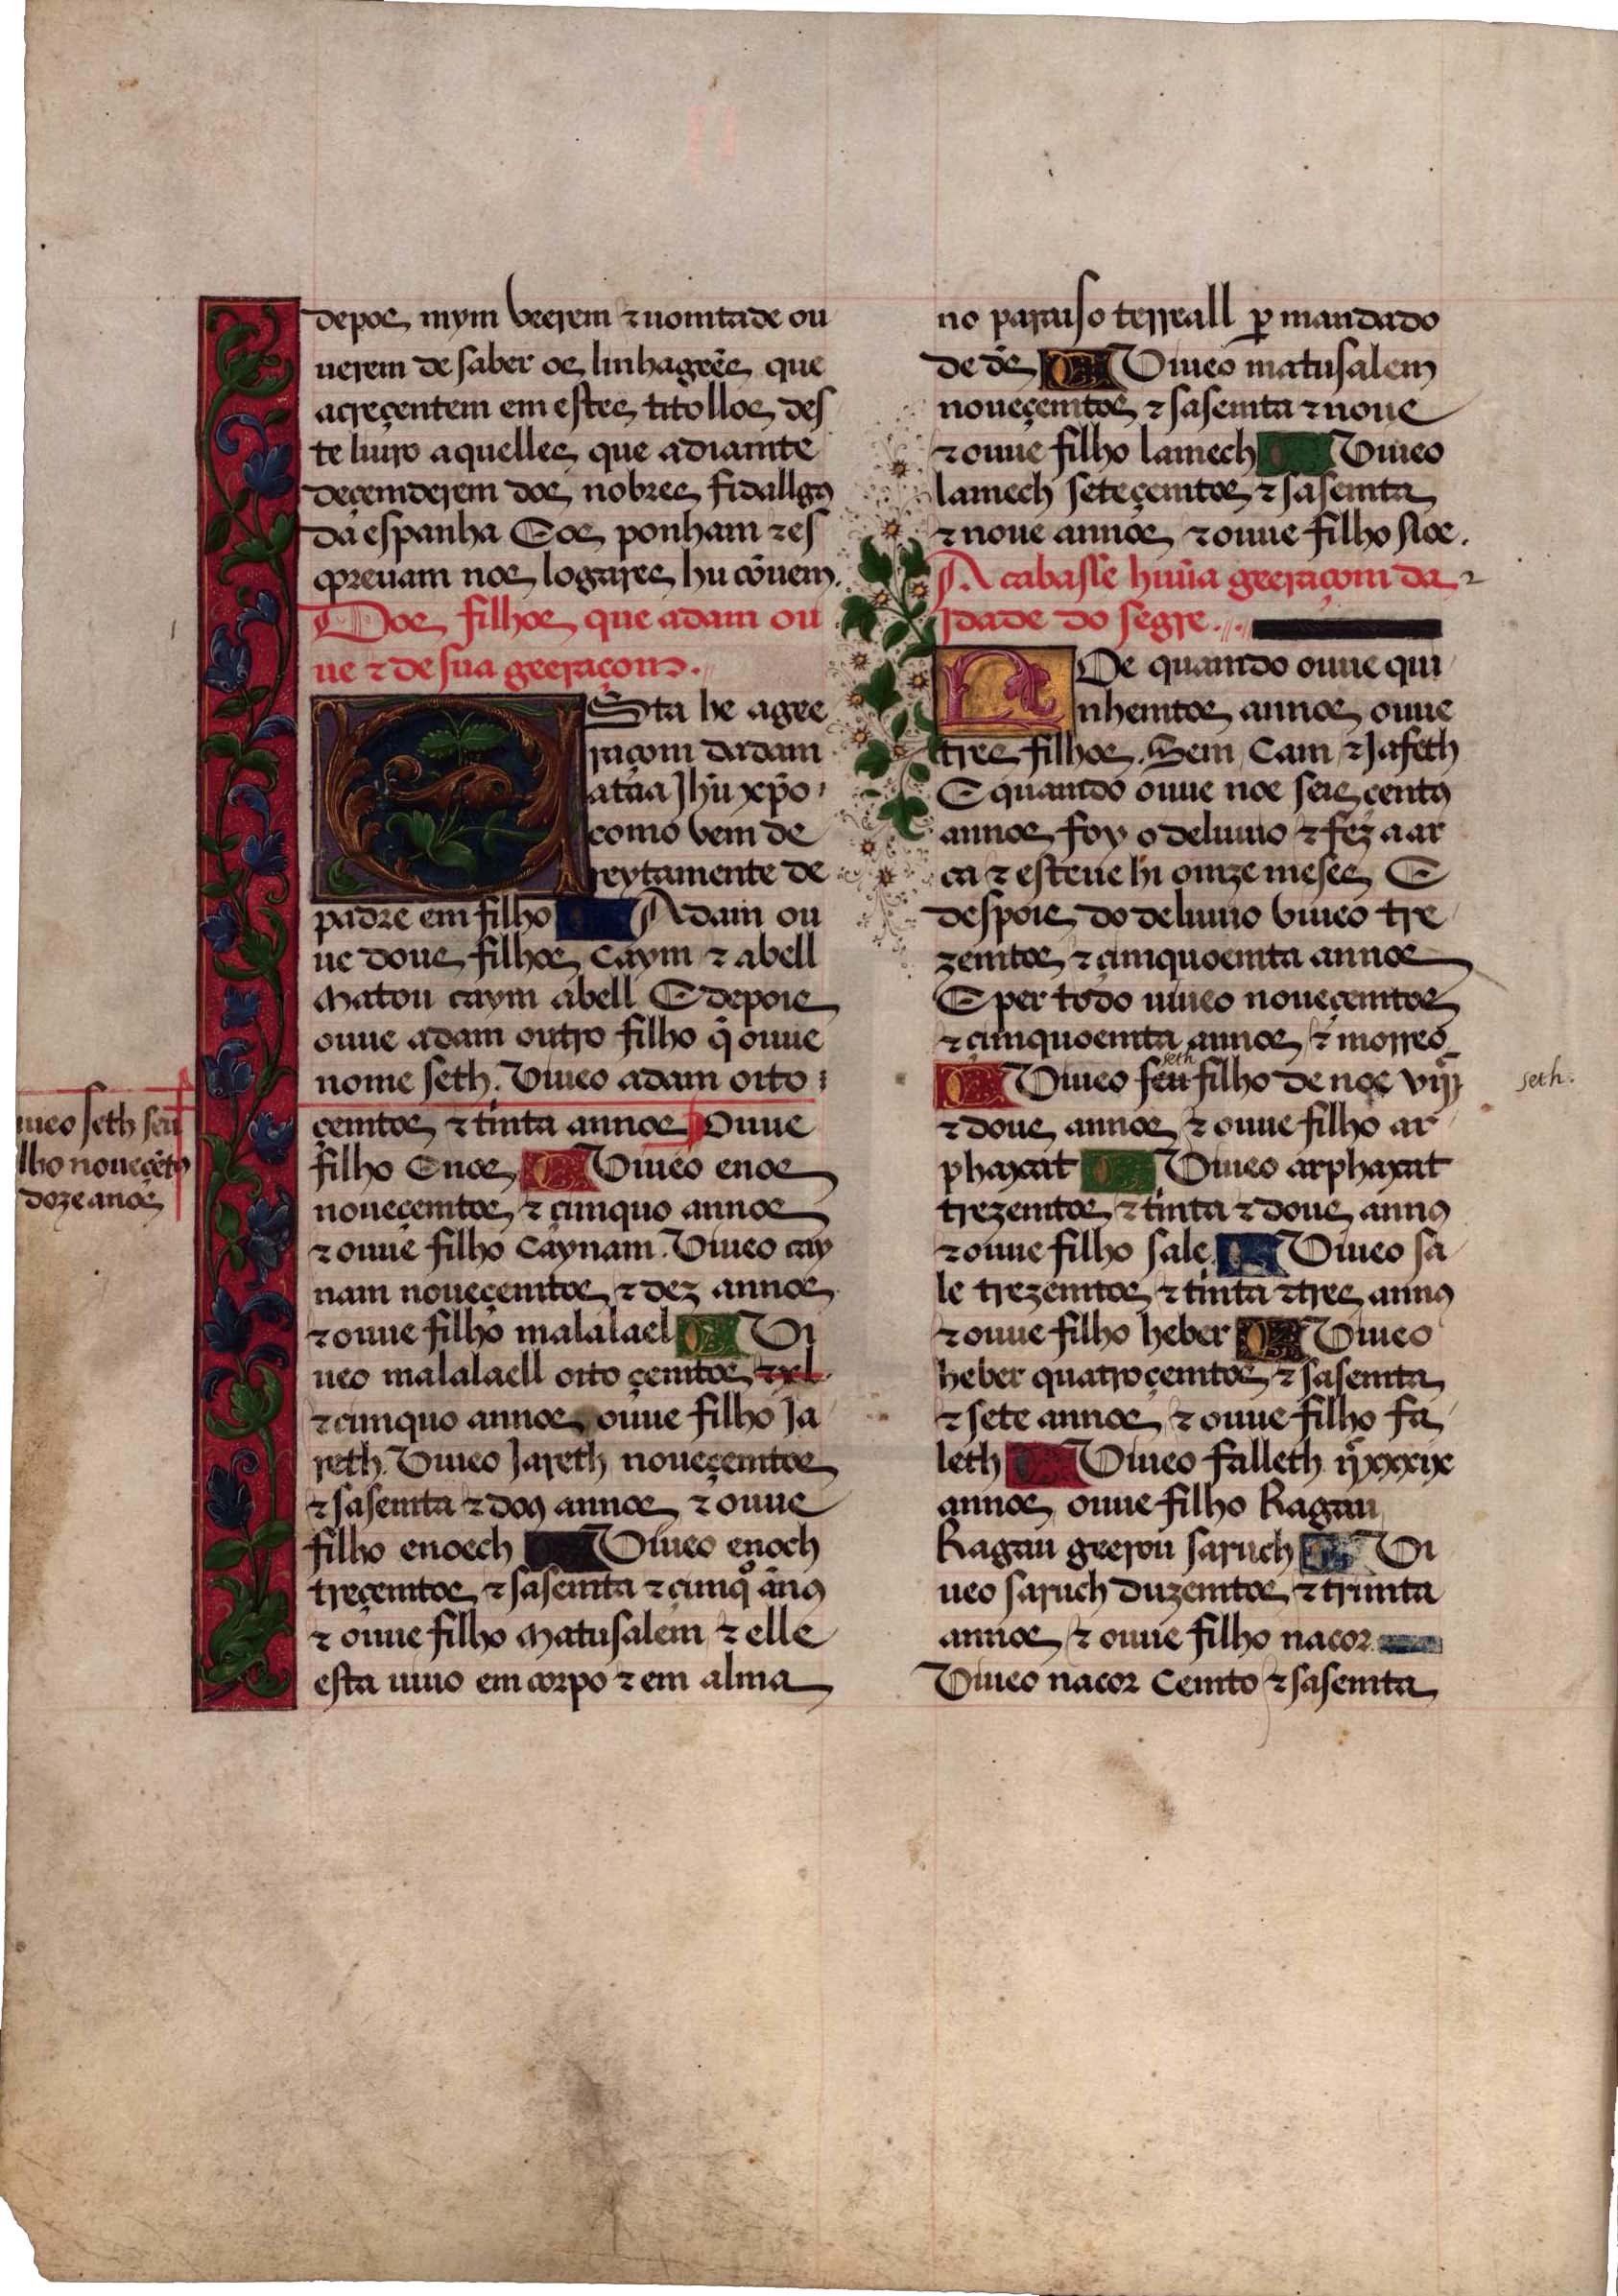 depos mym veerem ⁊ uomtade ou
uerem de saber os linhageẽs que
acreçentem em estes titollos des
te liuro aquelles que adiamte
deçemderem dos nobres fidallgos
da espanha E os ponham ⁊ es
cpreuam nos logares hu cõuem.
Dos filhos que adam ou
ue ⁊ de sua geeraçom.
Esta he a gee
raçom dadam
ataa Jhũ xpõ
como vem de
reytamente de
padre em filho Adam ou
ue dous filhos caym ⁊ abell
Matou caym abell E depois
ouue adam outro filho q̃ ouue
nome seth. Viueo adam oito
çemtos ⁊ tinta annos Ouue
filho Enos Viueo enos
noueçemtos ⁊ çimquo annos
⁊ ouue filho caynam. Viueo cay
nam noueçemtos ⁊ dez annos
⁊ ouue filho malalael Vi
ueo malalaell oito çemtos ⁊ xl
⁊ cimquo annos ouue filho Ja
reth. Viueo Jareth noueçemtos
⁊ sasemta ⁊ dos annos ⁊ ouue
filho enoech Viueo enoch
treçemtos ⁊ sasemta ⁊ çimq̊ ãnos
⁊ ouue filho Matusalem ⁊ elle
esta uiuo em corpo ⁊ em alma
ueo seth seu
lho noueçẽtos
doze anos
no paraiso terreall p mandado
de ds̃ Viueo matusalem
noueçemtos ⁊ sasemta ⁊ noue
⁊ ouue filho lamech Viueo
lamech seteçemtos ⁊ sasemta
⁊ noue annos ⁊ ouue filho Noe.
Acabasse hũua geeraçom da
Jdade do segre.
Noe quamdo ouue qui
nhemtos annos ouue
tres filhos. Sem Cam ⁊ Jafeth
E quamdo ouue noe seis centos
annos foy o deluuio ⁊ fez a ar
ca ⁊ esteue hi omze meses E
despois do deluuio viueo tre
zemtos ⁊ çimquoemta annos
E per todo uiueo noueçemtos
⁊ çimquoemta annos ⁊ morreo
seth
Viueo seu filho de noe vjͨ
⁊ dous annos ⁊ ouue filho ar
phaxat Viueo arphaxat
trezemtos ⁊ tinta ⁊ dous annos
⁊ ouue filho sale Viueo sa
le trezemtos ⁊ tinta ⁊ tres annos
⁊ ouue filho heber Viueo
heber quatroçemtos ⁊ sasemta
⁊ sete annos ⁊ ouue filho fa
leth Viueo falleth ijͨxxxix
annos ouue filho Ragau
Ragau geerou saruch Vi
ueo saruch duzemtos ⁊ trimta
annos ⁊ ouue filho nacor
Viueo nacor Cemto ⁊ sasemta
seth.